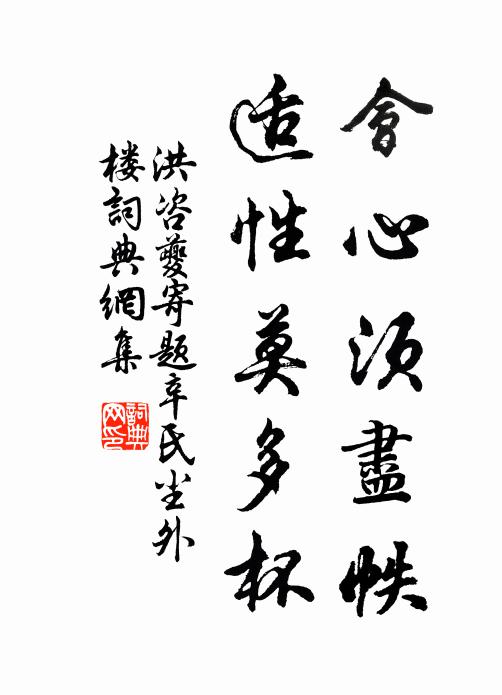 會心須盡帙
适性莫多杯
洪咨夔寄題辛氏尘外
楼詞典網集
詞典网印